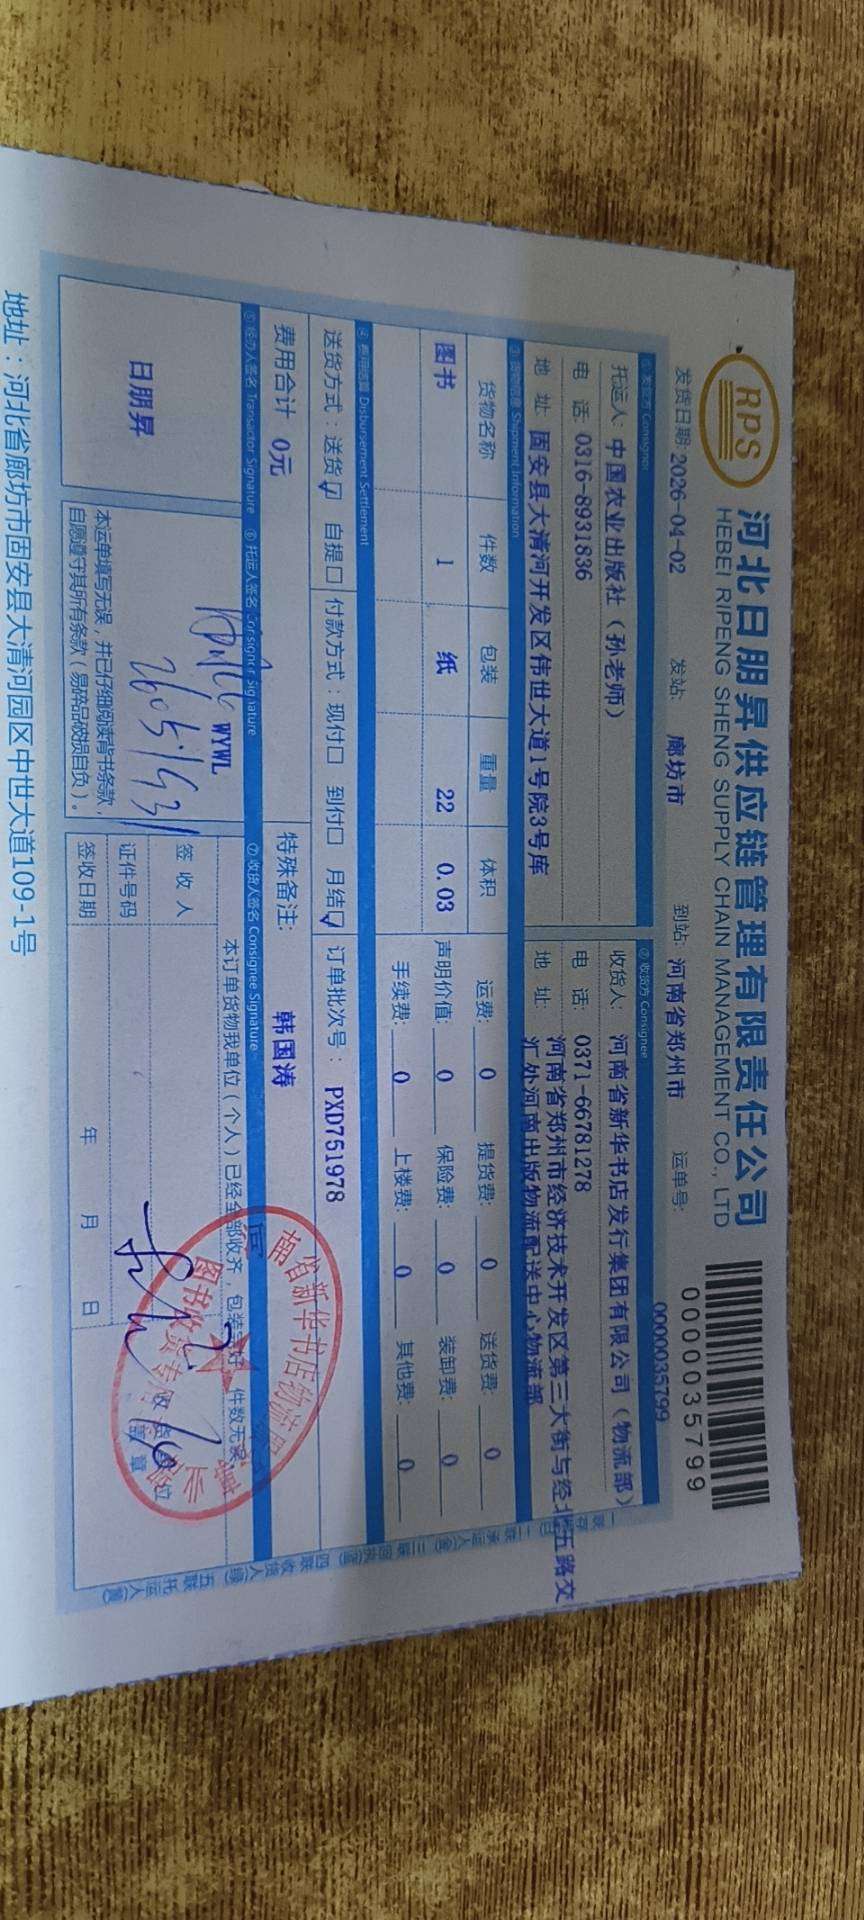 RPS
河北日朋昇供应链管理有限责任公司
HEBEI RIPENG SHENG SUPPLY CHAIN MANAGEMENT CO., LTD
0000035799
发货日期: 2026-04-02 发站: 廊坊市 到站: 河南省郑州市 运单号: 0000035799
① 发货方 Consignor ② 收货方 Consignee
托运人: 中国农业出版社（孙老师） 收货人: 河南省新华书店发行集团有限公司（物流部）
电 话: 0316-8931836 电 话: 0371-66781278
地 址: 固安县大清河开发区伟世大道1号院3号库 地 址: 河南省郑州市经济技术开发区第三大街与经北五路交
汇处河南出版物流配送中心物流部
③ 货物信息 Shipment Information
货物名称 件数 包装 重量 体积 运费: 0 提货费: 0 送货费: 0
图书 1 纸 22 0.03 声明价值: 0 保险费: 0 装卸费: 0
手续费: 0 上楼费: 0 其他费: 0
④ 费用结算 Disbursement Settlement
送货方式: 送货☑ 自提□ 付款方式: 现付□ 到付□ 月结☑ 订单批次号: PXD751978
费用合计 0元 特殊备注: 韩国涛
⑤ 经办人签名 Transactor Signature ⑥ 托运人签名 Consignor Signature ⑦ 收货人签名 Consignee Signature
日朋昇
WYWL
本运单填写无误，并已仔细阅读背书条款，
自愿遵守其所有条款（易碎品破损自负）。
本订单货物我单位（个人）已经全部收齐，包装完好，件数无误
签 收 人
证件号码
签收日期 年 月 日
南省新华书店物流
图书收货专
地址：河北省廊坊市固安县大清河园区中世大道109-1号